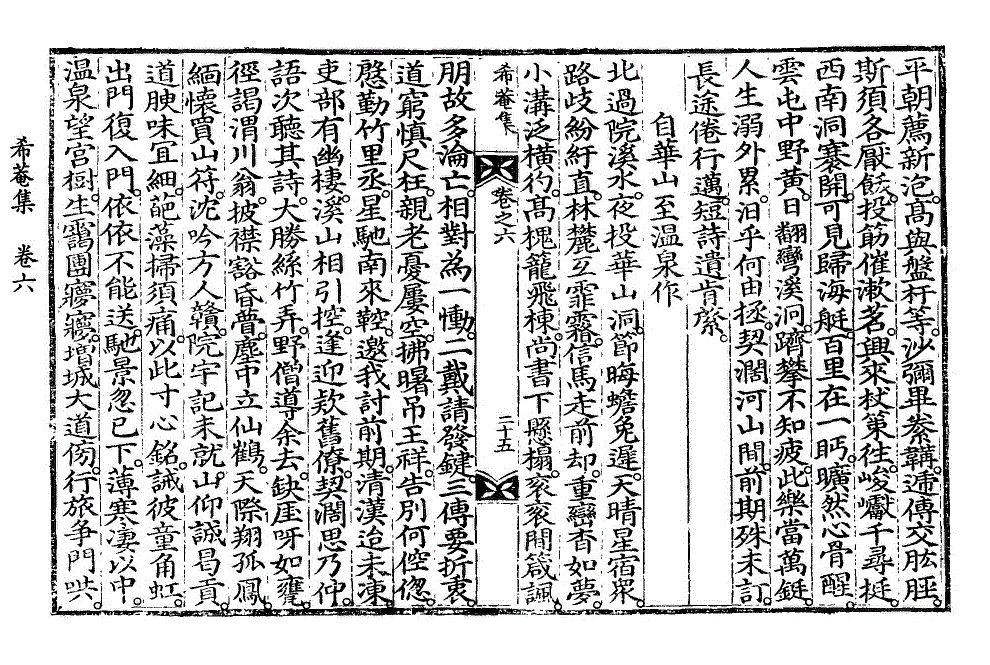 平朝薦新泡高與盤杅等沙彌畢豢韝遞傳交肱脛
斯須各厭餘投筯催漱茗興來杖策往峻巘千尋挺
西南洞寥開可見歸海艇百里在一眄曠然心骨醒
雲屯中野黃日翻彎溪泂躋攀不知疲此樂當萬鋌
人生溺外累汩乎何由拯契濶河山間前期殊未訂
長途倦行邁短詩遺肯綮
自華山至温泉作
北過院溪水夜投華山洞節晦蟾兔遲天晴星宿衆
路歧紛紆直林麓互霏霧信馬走前却重巒杳如夢
小溝泛橫彴髙槐籠飛棟尚書下懸榻衮衮開箴諷
希菴集
卷之六
二十五
朋故多淪亡相對為一慟二戴請發鍵三傳要折衷
道窮慎尺枉親老憂屢空拂曙吊王祥告别何倥偬
慇勤竹里丞星馳南來鞚邀我討前期清漢迨未凍
吏部有幽棲溪山相引控逢迎欵舊僚契濶思乃仲
語次聽其詩大勝絲竹弄野僧導余去缺厓呀如甕
徑謁渭川翁披襟豁昏瞢塵中立仙鶴天際翔孤鳳
緬懷賈山符沈吟方人贛院宇記未就山仰誠曷貢
道腴味冝細葩藻掃須痛以此寸心銘誡彼童角虹
出門復入門依依不能送馳景忽已下薄寒凄以中
温泉望宫樹生靄團夢夢増城大道傍行旅争門哄
希菴集
卷六